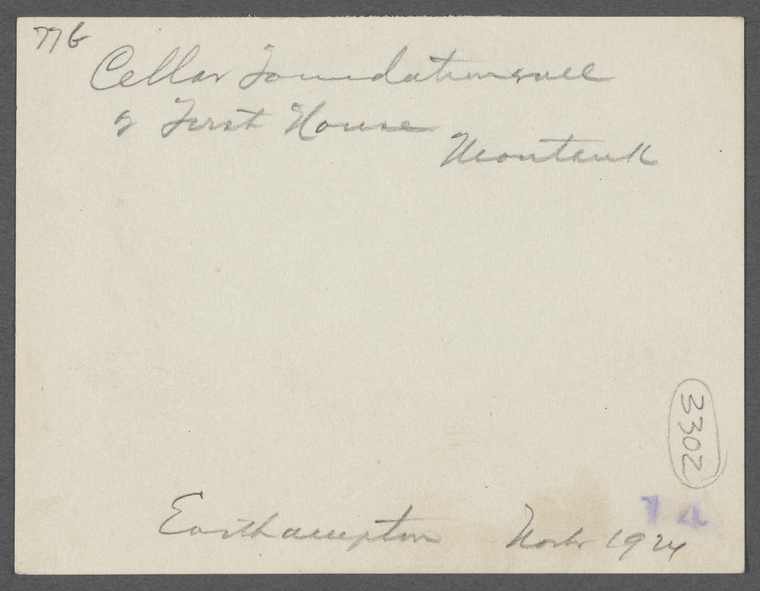 776
Cellar Foundation wall
of First House
Montauk
3302
14
Easthampton Novbr 1924